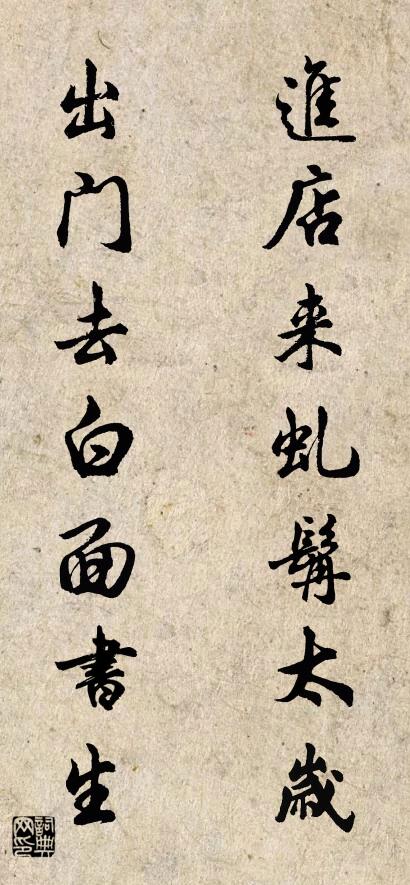 進店来虬髯太歲
出门去白面書生
詞典网印